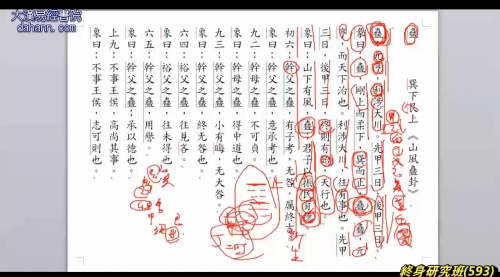 大漢易經書院
dahann.com
蠱 巽下艮上 《山風蠱卦》
蠱，元亨，利涉大川。先甲三日，後甲三日。
彖曰：蠱，剛上而柔下，巽而止，蠱。蠱，元
亨，而天下治也。利涉大川，往有事也。先甲
三日，後甲三日，終則有始，天行也。
象曰：山下有風，蠱，君子以振民育德。
初六：幹父之蠱，有子考，无咎，厲終吉。
象曰：幹父之蠱，意承考也。
九二：幹母之蠱，不可貞。
象曰：幹母之蠱，得中道也。
九三：幹父之蠱，小有晦，无大咎。
象曰：幹父之蠱，終无咎也。
六四：裕父之蠱，往見吝。
象曰：裕父之蠱，往未得也。
六五：幹父之蠱，用譽。
象曰：幹父之蠱，承以德也。
上九：不事王侯，高尚其事。
象曰：不事王侯，志可則也。
終身研究班(593)